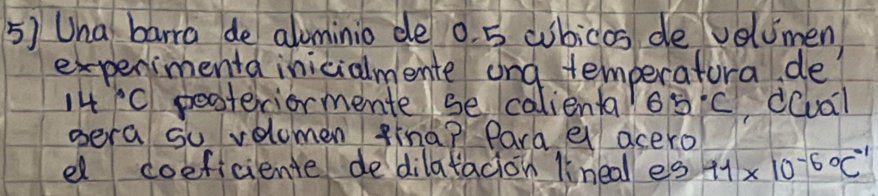 5) Una barra de aluminio de 0.5 cúbicos de volúmen,
experimenta inicialmente una temperatura de
14 °C posteriormente se calienta 65 °C, ¿Cuál
sera su volumen final? Para el acero
el coeficiente de dilatación lineal es 11 x 10⁻⁶ °C⁻¹